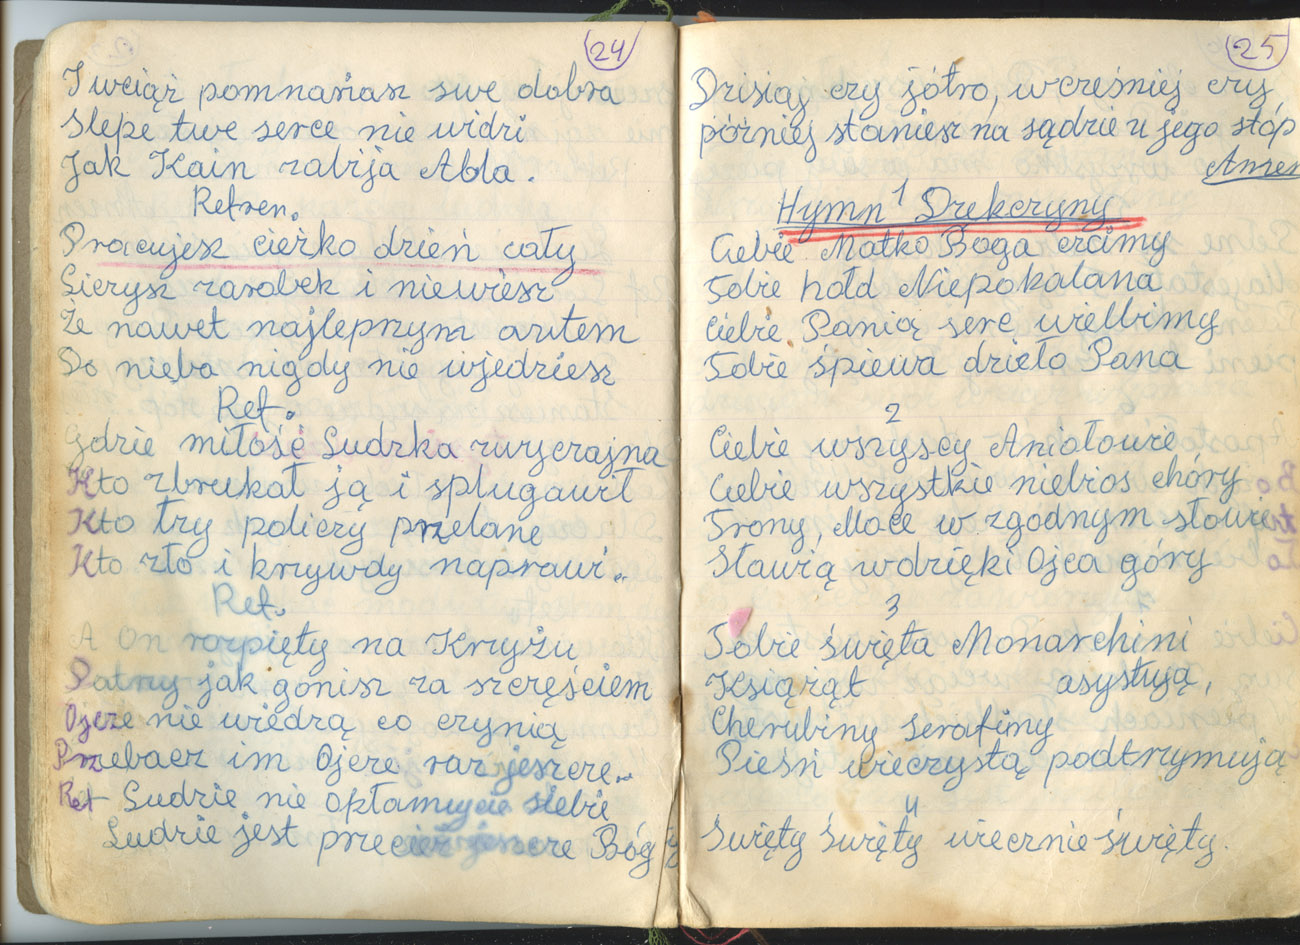 24
I wciąż pomnażasz swe dobra
Slepe twe serce nie widzi
Jak Kain zabija Abla.
Refren.
Pracujesz cieżko dzień cały
Liczysz zarobek i niewiesz
Że nawet najlepszym autem
Do nieba nigdy nie wjedziesz
Ref.
Gdzie miłość Ludzka zwyczajna
Kto zbrukał ją i splugawił
Kto łzy policzy przelane
Kto zło i krzywdy naprawi.
Ref.
A On rozpięty na Krzyżu
Patrzy jak gonisz za szczęściem
Ojcze nie wiedzą co czynią
Przebacz im Ojcze raz jeszcze.
Ref Ludzie nie okłamujcie siebie
Ludzie jest przecież jeszcze Bóg
25
Dzisiaj czy jótro, wcześniej czy
póżniej staniesz na sądzie u jego stóp
Amen
1
Hymn Dzekczyny
Ciebie Matko Boga czcimy
Tobie hołd Niepokalana
Ciebie Panią serc wielbimy
Tobie śpiewa dzieło Pana
2
Ciebie wszyscy Aniołowie
Ciebie wszystkie niebios chóry
Trony, Moce w zgodnym słowie
Sławią wdzięki Ojca góry
3
Tobie święta Monarchini
Książąt asystują,
Cherubiny serafiny
Pieśń wieczystą podtrzymują
4
Święty Święty wiecznie święty.